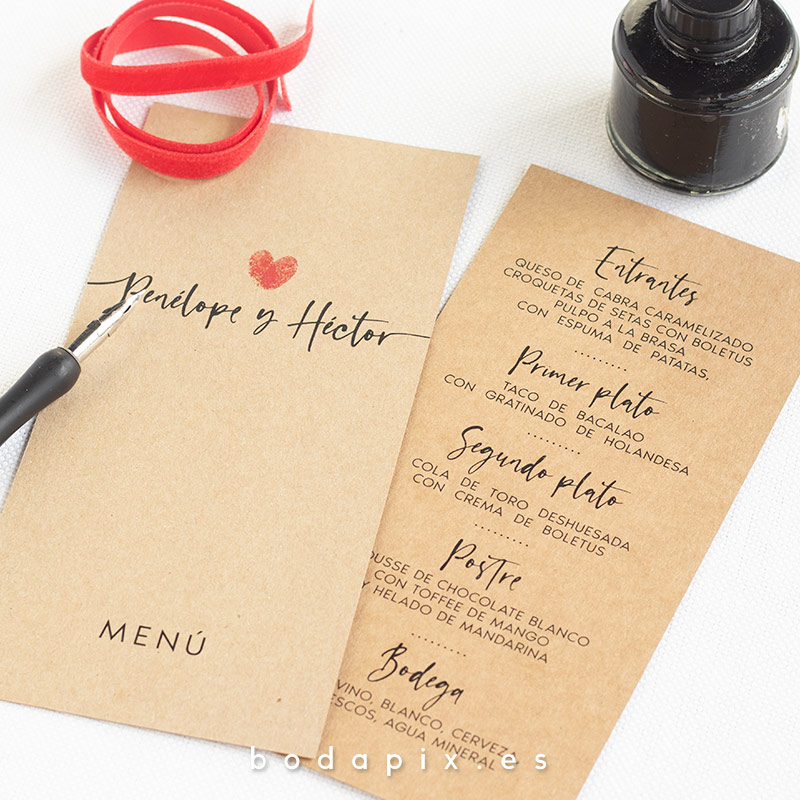 Penélope y Héctor
MENÚ
Entrantes
QUESO DE CABRA CARAMELIZADO
CROQUETAS DE SETAS CON BOLETUS
PULPO A LA BRASA
CON ESPUMA DE PATATAS,
Primer plato
TACO DE BACALAO
CON GRATINADO DE HOLANDESA
Segundo plato
COLA DE TORO DESHUESADA
CON CREMA DE BOLETUS
Postre
OUSSE DE CHOCOLATE BLANCO
CON TOFFEE DE MANGO
Y HELADO DE MANDARINA
Bodega
VINO, BLANCO, CERVEZA
ESCOS, AGUA MINERAL
bodapix.es